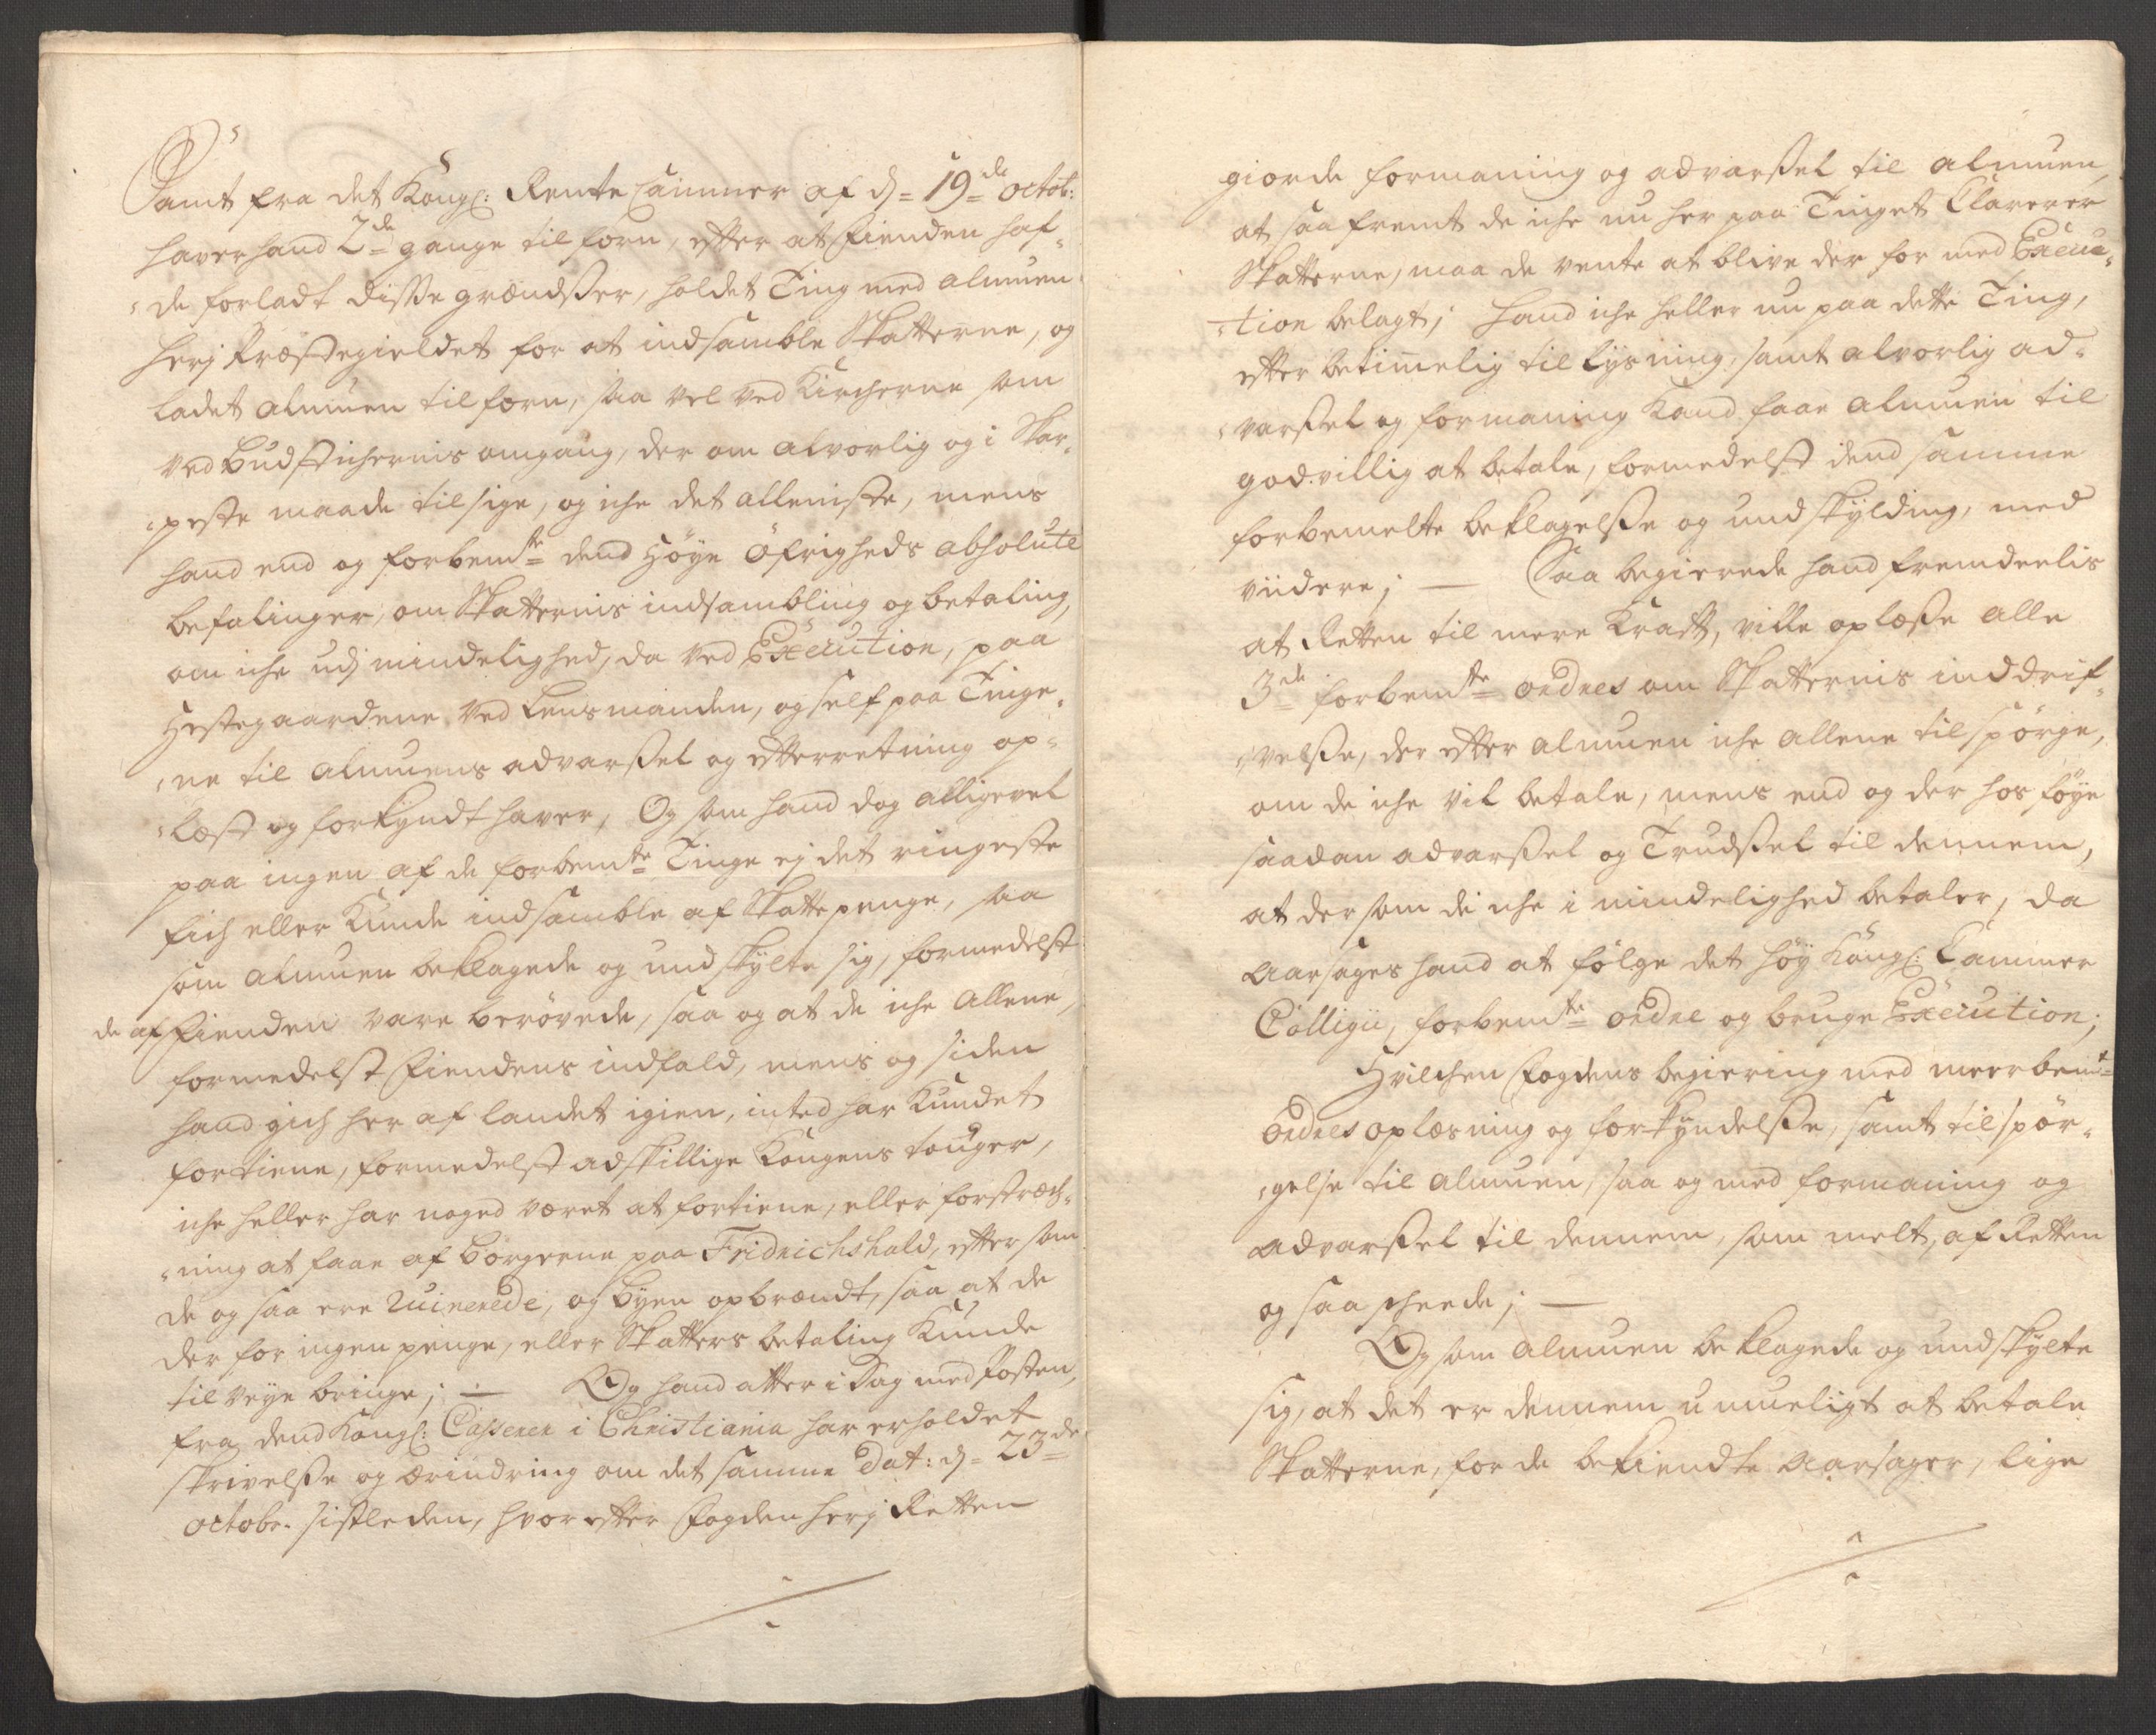 Samt fra det Kongl: Rente Cammer af d= 19de octob:
haver hand 2de gange tilforn, efter at Fienden haf-
de forladt disse grændser, holdet Ting med almuen
herj Præstegieldet for at indsamble Skatterne, og
ladet almuen tilforn, saa vel ved Kircherne som
ved Budstichernis omgang, der om alvorlig og i Skar-
peste maade tilsige, og iche det alleniste, mens
hand end og forbemte dend Høye Øfrigheds absolute
befalinger, om Skatternis indsambling og betaling,
om iche udj mindelighed, da ved Execution, paa
Hestegaardene ved Lensmanden, og self paa Tinge-
ne til almuens advarßel og efterretning op-
læst og forkyndt haver, Og som hand dog alligevel
paa ingen af de forbemte Tinge ej det ringeste
fich eller Kunde indsamble af Skatte penge, saa
som almuen beklagede og undskylte sig, formedelst
de af Fienden vare berøvede, saa og at de iche allene,
formedelst Fiendens indfald, mens og siden
hand gich her af landet igien, inted har kundet
fortiene, formedelst adskillige Kongens touger,
iche heller har noged været at fortiene, eller forstræch-
ning at faae af Borgerne paa Fridrichshald, efter som
de og saa ere Ruinerede, og Byen opbrændt, saa at de
der for ingen penge, eller Skatters betaling Kunde
til veye bringe; — Og hand atter i Dag med Posten,
fra dend Kongl: Casserer i Christiania har erholdet
skrivelße og ærindring om det samme Dat: d= 23de
octobr. sistleden, hvor efter Fogden herj Retten
giorde formaning og advarßel til almuen,
at saa fremt de iche nu her paa Tinget Clarerer
Skatterne, maa de vente at blive der for med Execu-
tion belagt; hand iche heller nu paa dette Ting,
efter betimelig til lysning, samt alvorlig ad-
varßel og formaning Kand faae almuen til
godvillig at betale, formedelst dend samme
forbemelte beklagelße og undskylding, med
viidere; — Saa begierede hand fremdeelis
at Retten til mere Kraft, ville oplæße alle
3de forbemte ordres om Skatternis inddrif-
velße, der efter almuen iche allene tilspørge,
om de iche vil betale, mens end og der hos føye
saadan advarßel og Trudßel til dennem,
at der som de iche i mindelighed betaler, da
aarsages hand at følge det høy Kongl: Cammer
Collegii, forbemte ordre og bruge Execution;
Hvilchen Fogdens begiering med meerbemte
Ordres oplæsning og forkyndelße, samt tilspør-
gelse til almuen, saa og med formaning og
advarßel til dennem, som melt, af Retten
og saa scheede; —
Og som almuen beklagede og undskylte
sig, at det er dennem umueligt at betale
Skatterne, for de bekiendte aarsager, lige